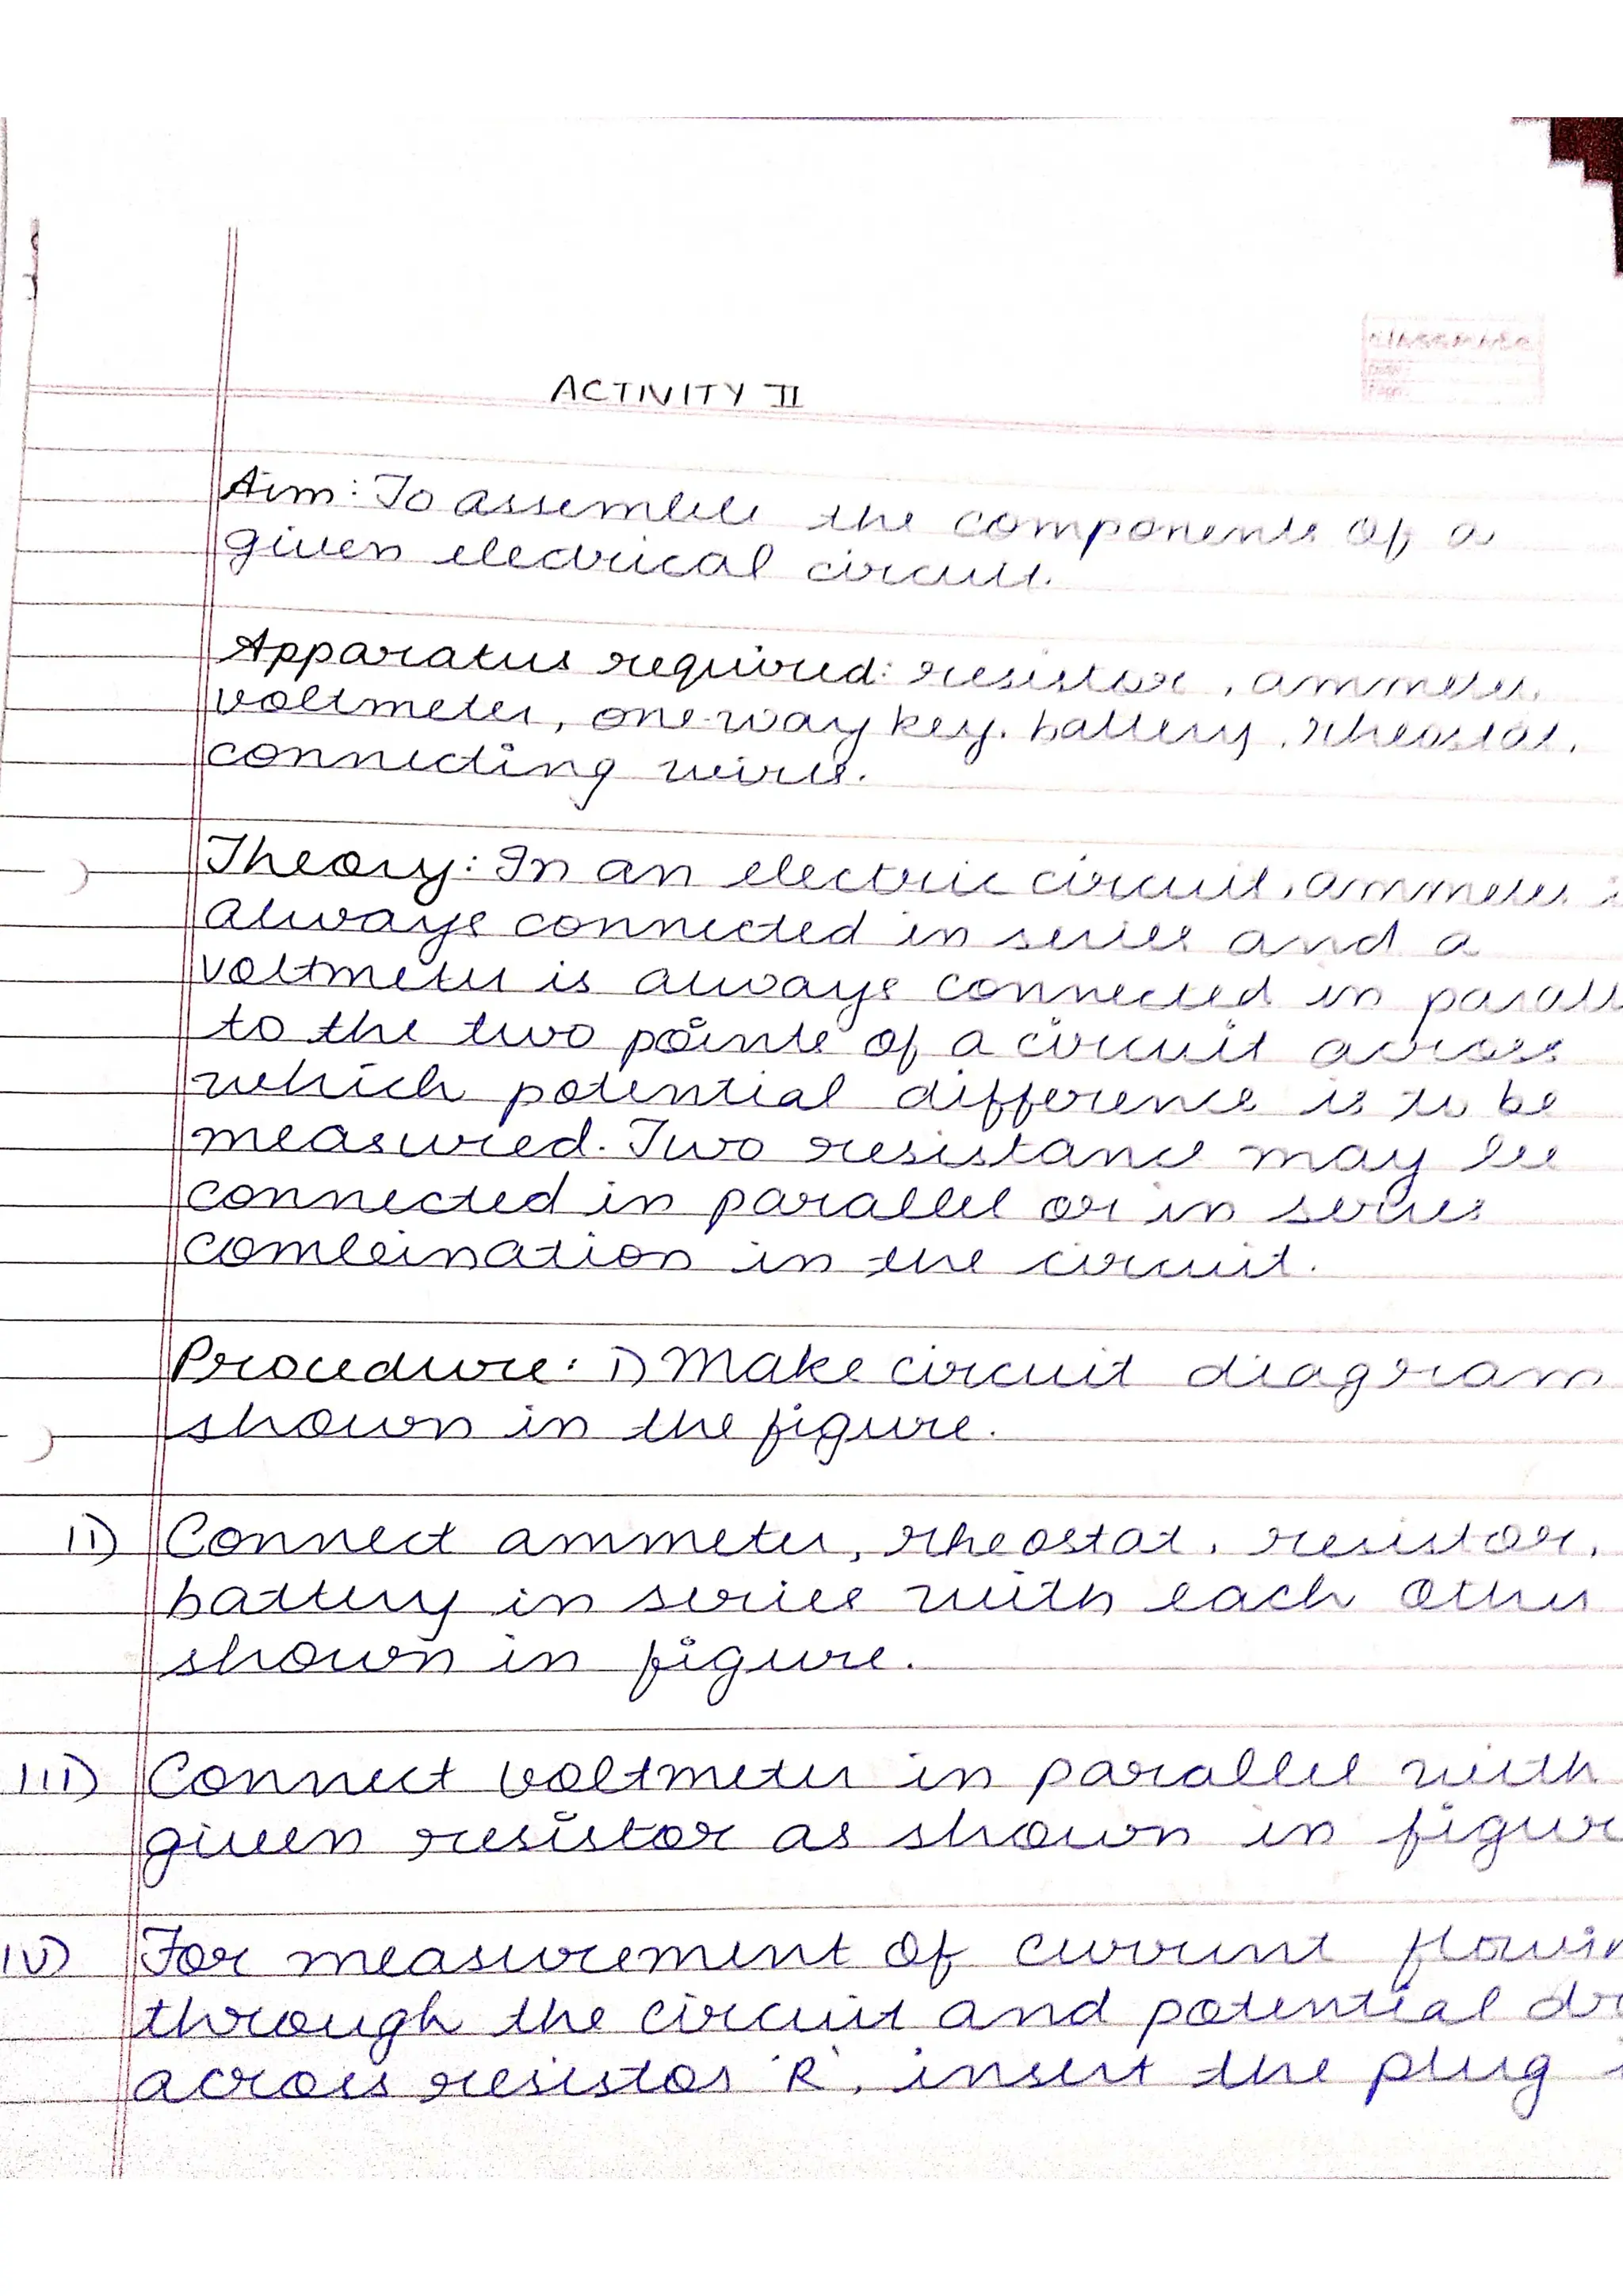 classmate
Date
Page
ACTIVITY II
Aim: To assemble the components of a
given electrical circuit.
Apparatus required: resistor, ammeter,
voltmeter, one-way key, battery, rheostat,
connecting wires.
Theory: In an electric circuit, ammeter i
always connected in series and a
voltmeter is always connected in parall
to the two points of a circuit across
which potential difference is to be
measured. Two resistance may be
connected in parallel or in series
combination in the circuit.
Procedure: i) Make circuit diagram
shown in the figure.
ii) Connect ammeter, rheostat, resistor,
battery in series with each other
shown in figure.
iii) Connect voltmeter in parallel with
given resistor as shown in figur
iv) For measurement of current flowin
through the circuit and potential dr
across resistor 'R', insert the plug i